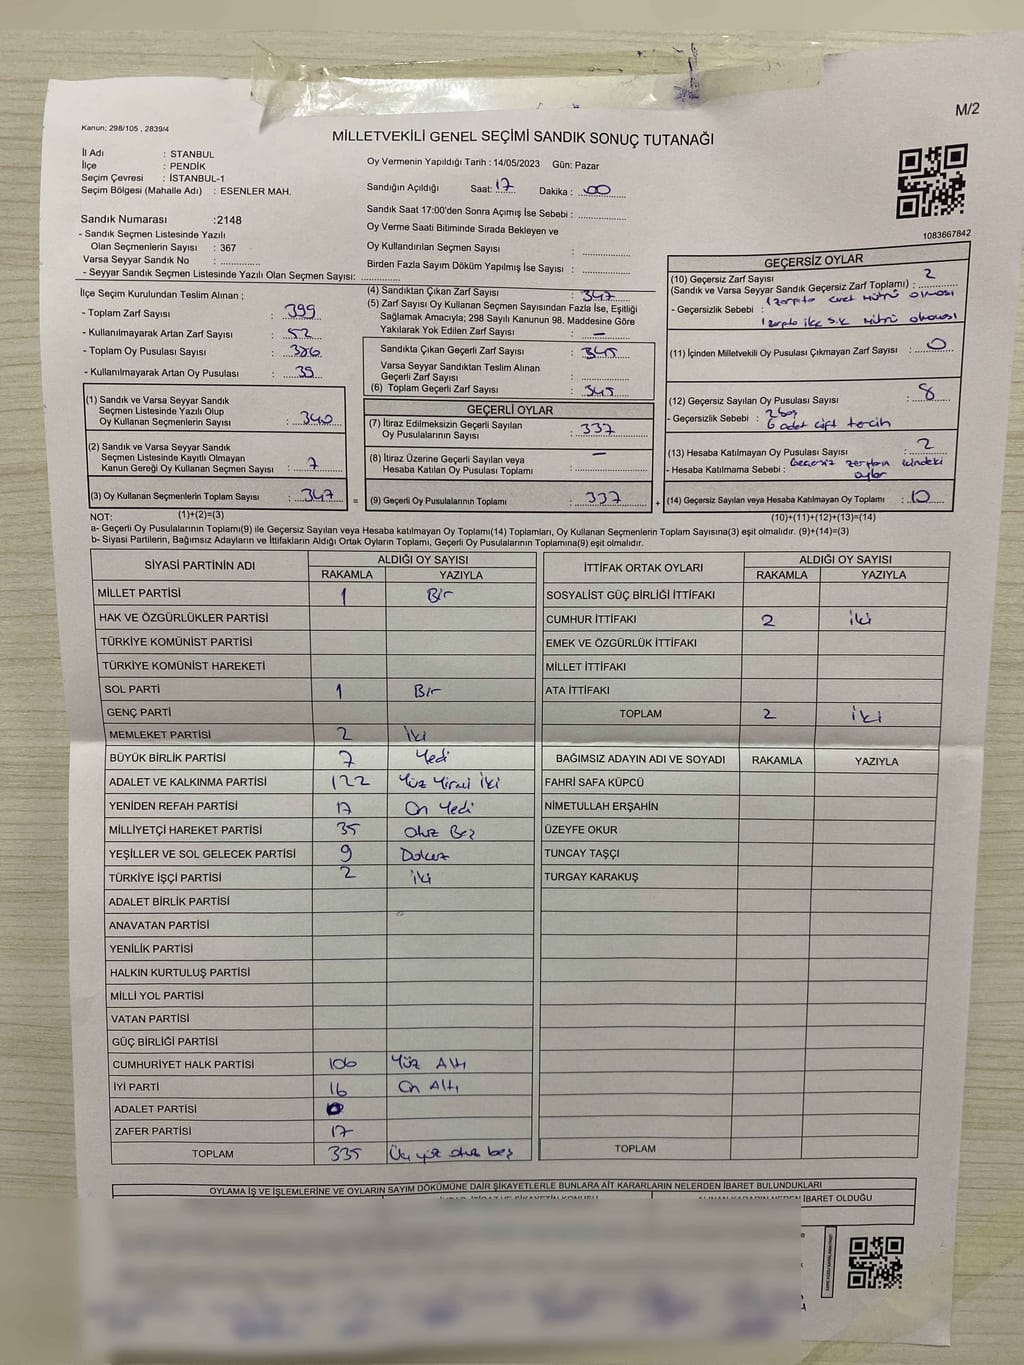 M/2
Kanun; 298/105 , 2839/4
MİLLETVEKİLİ GENEL SEÇİMİ SANDIK SONUÇ TUTANAĞI
İl Adı : İSTANBUL
İlçe : PENDİK
Seçim Çevresi : İSTANBUL-1
Seçim Bölgesi (Mahalle Adı) : ESENLER MAH.
Sandık Numarası :2148
- Sandık Seçmen Listesinde Yazılı
Olan Seçmenlerin Sayısı : 367
Varsa Seyyar Sandık No : ..............
- Seyyar Sandık Seçmen Listesinde Yazılı Olan Seçmen Sayısı: ..............
Oy Vermenin Yapıldığı Tarih : 14/05/2023 Gün: Pazar
Sandığın Açıldığı Saat: 17 Dakika : 00
Sandık Saat 17:00'den Sonra Açımış İse Sebebi : ..............
Oy Verme Saati Bitiminde Sırada Bekleyen ve
Oy Kullandırılan Seçmen Sayısı : ..............
Birden Fazla Sayım Döküm Yapılmış İse Sayısı : ..............
1083667842
İlçe Seçim Kurulundan Teslim Alınan ;
- Toplam Zarf Sayısı : 399
- Kullanılmayarak Artan Zarf Sayısı : 52
- Toplam Oy Pusulası Sayısı : 386
- Kullanılmayarak Artan Oy Pusulası : 39
(1) Sandık ve Varsa Seyyar Sandık
Seçmen Listesinde Yazılı Olup
Oy Kullanan Seçmenlerin Sayısı : 340
(2) Sandık ve Varsa Seyyar Sandık
Seçmen Listesinde Kayıtlı Olmayan
Kanun Gereği Oy Kullanan Seçmen Sayısı : 7
(3) Oy Kullanan Seçmenlerin Toplam Sayısı : 347 =
(1)+(2)=(3)
(4) Sandıktan Çıkan Zarf Sayısı : 347
(5) Zarf Sayısı Oy Kullanan Seçmen Sayısından Fazla İse, Eşitliği
Sağlamak Amacıyla; 298 Sayılı Kanunun 98. Maddesine Göre
Yakılarak Yok Edilen Zarf Sayısı : —
Sandıkta Çıkan Geçerli Zarf Sayısı : 345
Varsa Seyyar Sandıktan Teslim Alınan
Geçerli Zarf Sayısı : ..............
(6) Toplam Geçerli Zarf Sayısı : 345
GEÇERLİ OYLAR
(7) İtiraz Edilmeksizin Geçerli Sayılan
Oy Pusulalarının Sayısı : 337
(8) İtiraz Üzerine Geçerli Sayılan veya
Hesaba Katılan Oy Pusulası Toplamı : —
(9) Geçerli Oy Pusulalarının Toplamı : 337 +
GEÇERSİZ OYLAR
(10) Geçersiz Zarf Sayısı 2
(Sandık ve Varsa Seyyar Sandık Geçersiz Zarf Toplamı) : ..............
- Geçersizlik Sebebi : 1 zarfta evet mührü olması
1 zarfta ilçe s.k mührü olmaması
(11) İçinden Milletvekili Oy Pusulası Çıkmayan Zarf Sayısı : 0
(12) Geçersiz Sayılan Oy Pusulası Sayısı : 8
- Geçersizlik Sebebi : 2 boş
6 adet çift tercih
(13) Hesaba Katılmayan Oy Pusulası Sayısı : 2
- Hesaba Katılmama Sebebi : Geçersiz zarfların içindeki
oylar
(14) Geçersiz Sayılan veya Hesaba Katılmayan Oy Toplamı : 10
(10)+(11)+(12)+(13)=(14)
NOT:
a- Geçerli Oy Pusulalarının Toplamı(9) ile Geçersiz Sayılan veya Hesaba katılmayan Oy Toplamı(14) Toplamları, Oy Kullanan Seçmenlerin Toplam Sayısına(3) eşit olmalıdır. (9)+(14)=(3)
b- Siyasi Partilerin, Bağımsız Adayların ve İttifakların Aldığı Ortak Oyların Toplamı, Geçerli Oy Pusulalarının Toplamına(9) eşit olmalıdır.
SİYASİ PARTİNİN ADI ALDIĞI OY SAYISI
RAKAMLA YAZIYLA
MİLLET PARTİSİ 1 Bir
HAK VE ÖZGÜRLÜKLER PARTİSİ
TÜRKİYE KOMÜNİST PARTİSİ
TÜRKİYE KOMÜNİST HAREKETİ
SOL PARTİ 1 Bir
GENÇ PARTİ
MEMLEKET PARTİSİ 2 İki
BÜYÜK BİRLİK PARTİSİ 7 Yedi
ADALET VE KALKINMA PARTİSİ 122 Yüz Yirmi İki
YENİDEN REFAH PARTİSİ 17 On Yedi
MİLLİYETÇİ HAREKET PARTİSİ 35 Otuz Beş
YEŞİLLER VE SOL GELECEK PARTİSİ 9 Dokuz
TÜRKİYE İŞÇİ PARTİSİ 2 iki
ADALET BİRLİK PARTİSİ
ANAVATAN PARTİSİ
YENİLİK PARTİSİ
HALKIN KURTULUŞ PARTİSİ
MİLLİ YOL PARTİSİ
VATAN PARTİSİ
GÜÇ BİRLİĞİ PARTİSİ
CUMHURİYET HALK PARTİSİ 106 Yüz Altı
İYİ PARTİ 16 On Altı
ADALET PARTİSİ
ZAFER PARTİSİ 17
TOPLAM 335 Üç yüz otuz beş
İTTİFAK ORTAK OYLARI ALDIĞI OY SAYISI
RAKAMLA YAZIYLA
SOSYALİST GÜÇ BİRLİĞİ İTTİFAKI
CUMHUR İTTİFAKI 2 iki
EMEK VE ÖZGÜRLÜK İTTİFAKI
MİLLET İTTİFAKI
ATA İTTİFAKI
TOPLAM 2 iki
BAĞIMSIZ ADAYIN ADI VE SOYADI RAKAMLA YAZIYLA
FAHRİ SAFA KÜPCÜ
NİMETULLAH ERŞAHİN
ÜZEYFE OKUR
TUNCAY TAŞÇI
TURGAY KARAKUŞ
TOPLAM
OYLAMA İŞ VE İŞLEMLERİNE VE OYLARIN SAYIM DÖKÜMÜNE DAİR ŞİKAYETLERLE BUNLARA AİT KARARLARIN NELERDEN İBARET BULUNDUKLARI
İBARET OLDUĞU